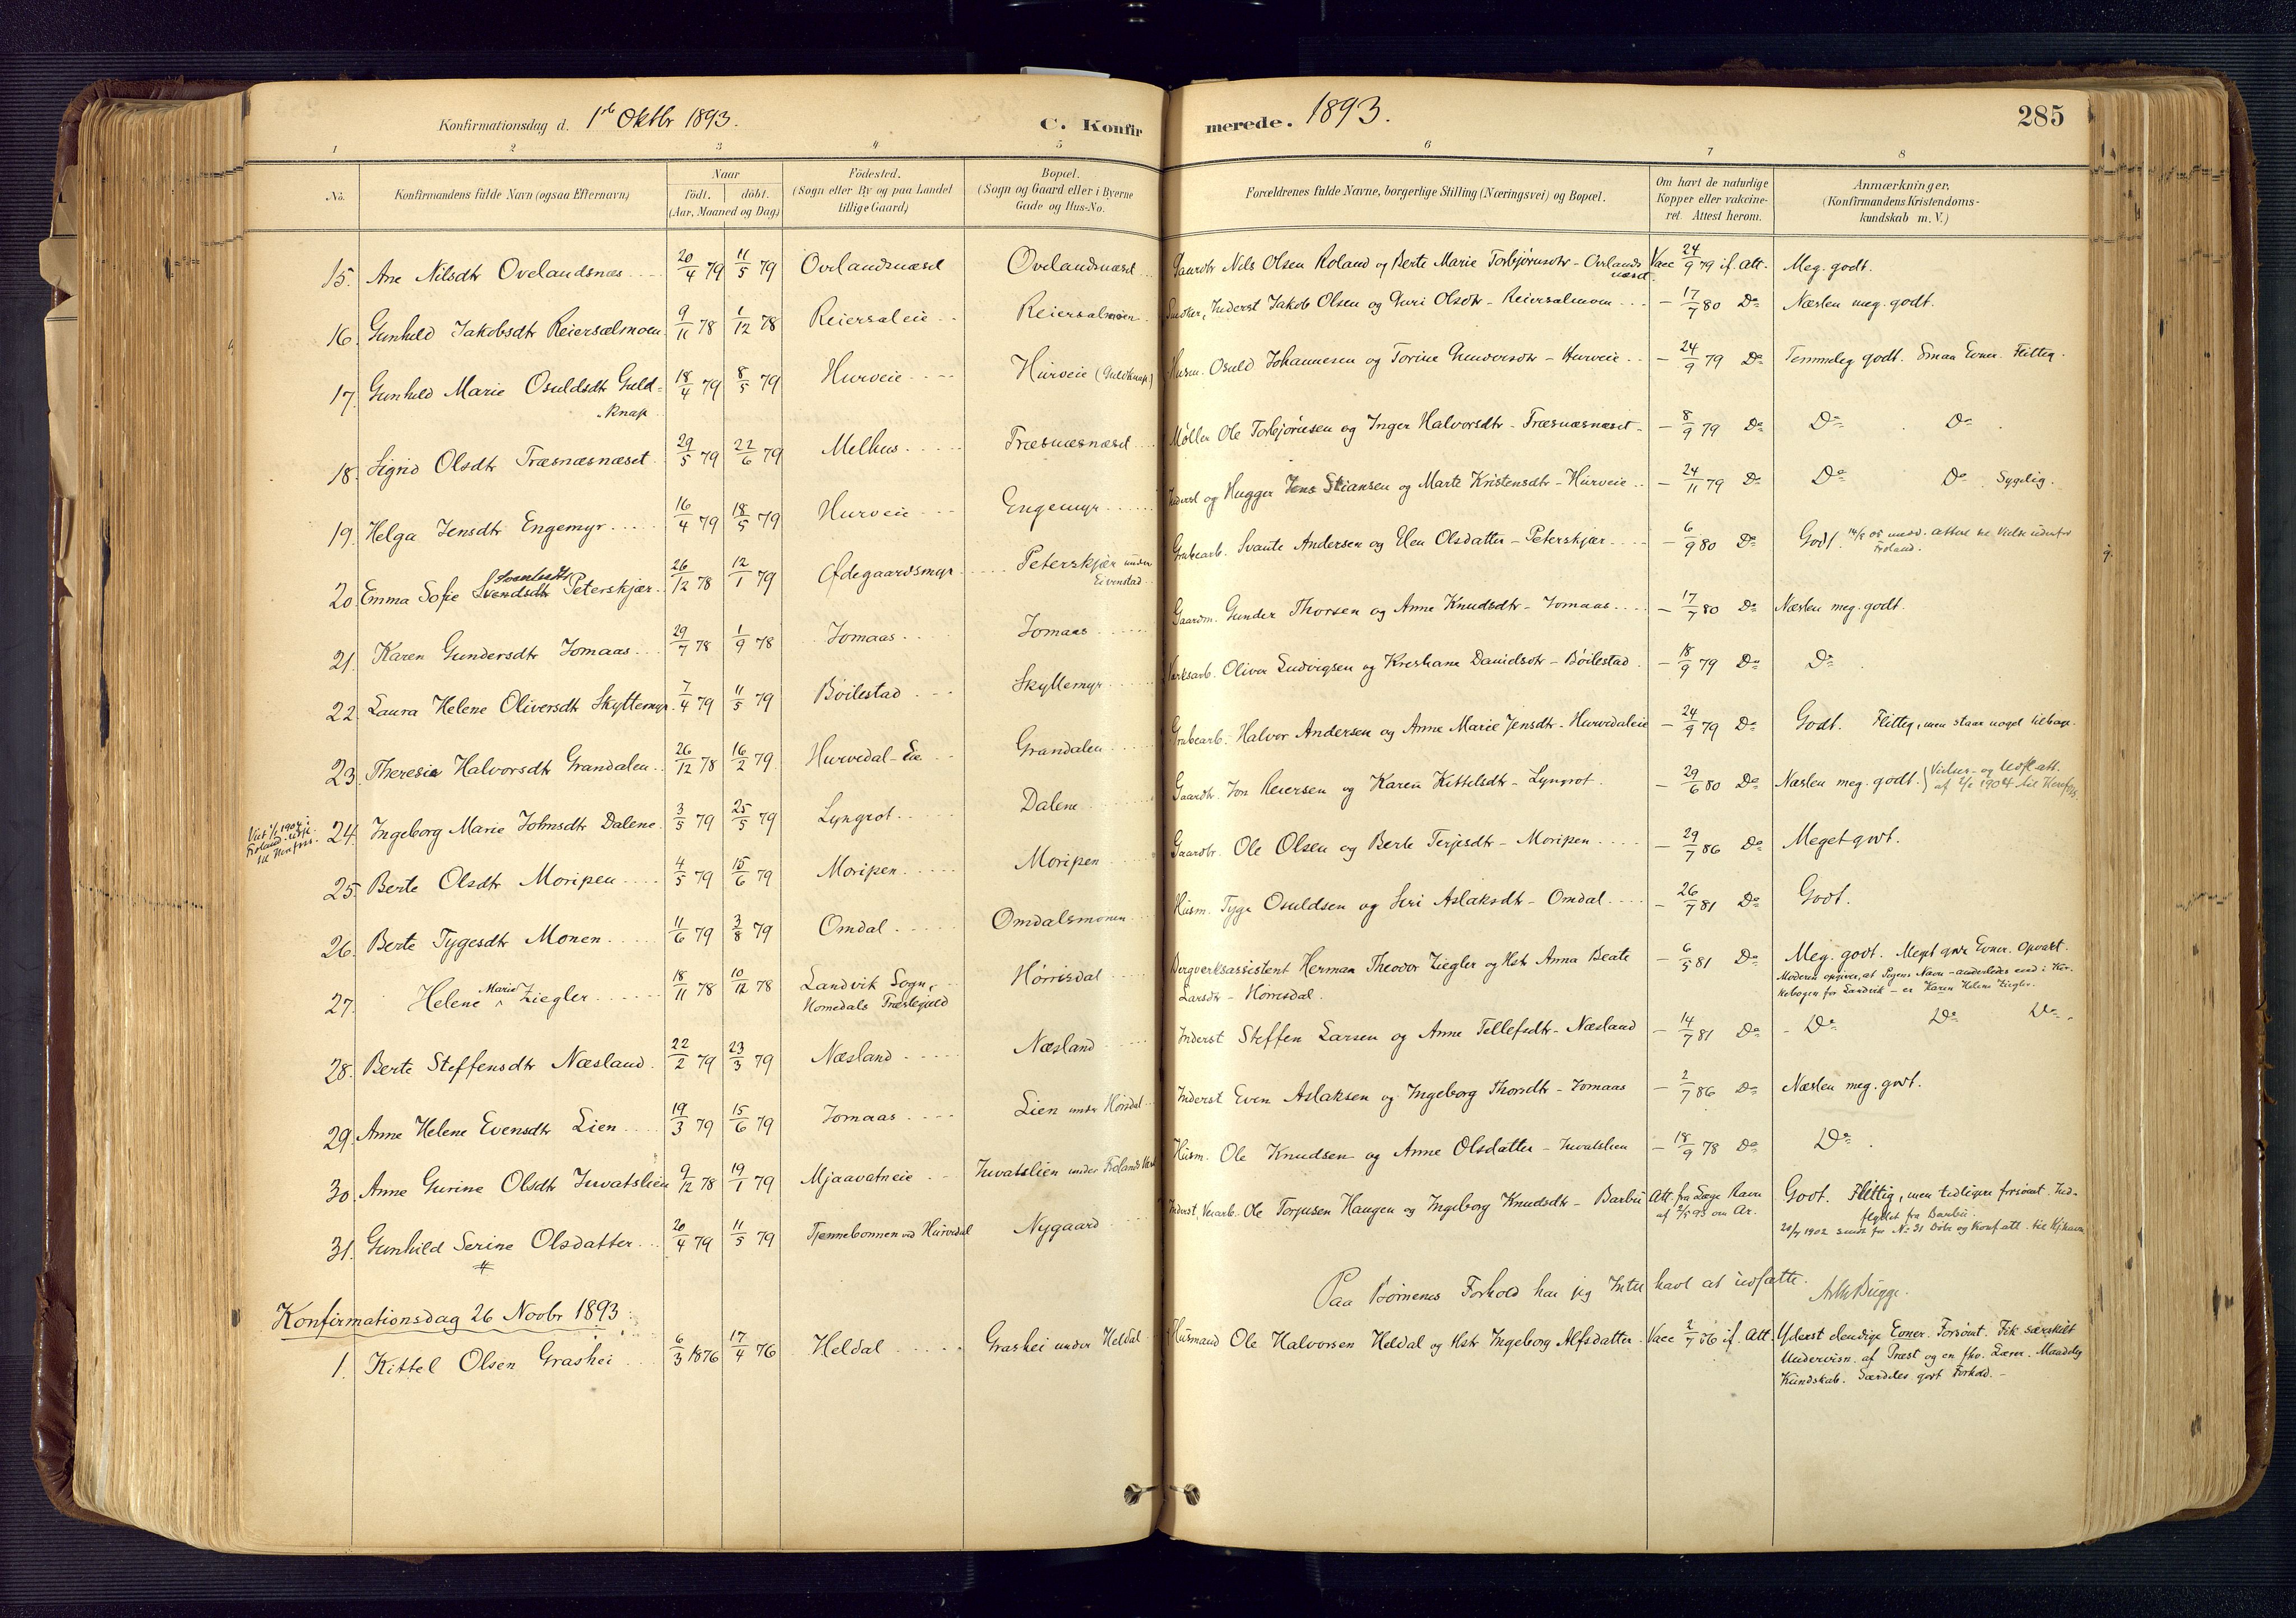 Konfirmationsdag d. 1ste Oktbr 1893. C. Konfirmerede. 1893. 285
1 2 3 4 5 6 7 8
No. Konfirmandens fulde Navn (ogsaa Efternavn) Naar født. døbt. (Aar, Maaned og Dag) Fødested. (Sogn eller By og paa Landet tillige Gaard) Bopæl. (Sogn og Gaard eller i Byerne Gade og Hus-No. Forældrenes fulde Navne, borgerlige Stilling (Næringsvei) og Bopæl. Om havt de naturlige Kopper eller vaccineret. Attest herom. Anmærkninger, (Konfirmandens Kristendomskundskab m. V.)
15. Ane Nilsdtr Ovelandsnæs 20/4 79 11/5 79 Ovelandsnæset Ovelandsnæset Gaardbr Nils Olsen Roland og Berte Marie Torbjørnsdtr - Ovelandsnæset Vacc 24/9 79 if. Att. Meg. godt.
16. Gunhild Jakobsdtr Reiersølmoen 9/11 78 1/12 78 Reiersøleie Reiersølmoen Snedker, Inderst Jakob Olsen og Guri Olsdtr - Reiersølmoen - 17/7 80 Do Næsten meg. godt.
17. Gunhild Marie Osuldsdtr Guldknap 18/4 79 8/5 79 Hurveie Hurveie (Guldknap) Husm. Osuld Johannesen og Torine Gundersdtr - Hurveie - 24/9 79 Do Temmelig godt. Smaa Evner. Flittig.
18. Sigrid Olsdtr Træsnæsnæset 29/5 79 22/6 79 Melhus Træsnæsnæset Møller Ole Torbjørnsen og Inger Halvorsdtr - Træsnæsnæset - 8/9 79 Do Do Do
19. Helga Jensdtr Engemyr 16/4 79 18/5 79 Hurveie Engemyr Inderst og Hugger Jens Stiansen og Marte Kristensdtr - Hurveie - 24/11 79 Do Do Do Sygelig.
20. Emma Sofie Svendsdtr Peterskjær 26/12 78 12/1 79 Ødegaardsmyr Peterskjær under Eivenstad Grubearb. Svante Andersen og Elen Olsdatter - Peterskjær - 6/9 80 Do Godt.
21. Karen Gundersdtr Jomaas 29/7 78 1/9 78 Jomaas Jomaas Gaardm. Gunder Thorsen og Anne Knudsdtr - Jomaas - 17/7 80 Do Næsten meg. godt.
22. Laura Helene Oliversdtr Skyttemyr 7/4 79 11/5 79 Bøilestad Skyttemyr Verksarb. Oliver Ludvigsen og Kreshane Danielsdtr - Bøilestad - 18/9 79 Do Do
23. Theresia Halvorsdtr Grandalen 26/12 78 16/2 79 Hurvedal-Eie Grandalen Grubearb. Halvor Andersen og Anne Marie Jensdtr - Hurvedaleie - 24/9 79 Do Godt. Flittig, men staar noget tilbage.
24. Ingeborg Marie Johnsdtr Dalene 3/5 79 25/5 79 Lyngrot Dalene Gaardbr. Jon Reiersen og Karen Kittelsdtr - Lyngrot. - 29/6 80 Do Næsten meg. godt.
25. Berte Olsdtr Moripen 4/5 79 15/6 79 Moripen Moripen Gaardbr. Ole Olsen og Berte Terjesdtr - Moripen - 29/7 86 Do Meget godt.
26. Berte Tygesdtr Monen 11/6 79 3/8 79 Omdal Omdalsmonen Husm. Tyge Osuldsen og Siri Aslaksdtr - Omdal - 26/7 81 Do Godt.
27. Helene Marie Ziegler 18/11 78 10/12 78 Landvik Sogn, Homedals Præstegjeld Hørrisdal Bergverksassistent Herman Theodor Ziegler og Hstr Anna Beate Larsdtr - Hørrisdal. - 6/5 81 Do Meg. godt. Meget gode Evner. Opvakt.
Moderen opgiver, at Pigens Navn - anderledes end i Kirkebogen for Landvik - er Karen Helene Ziegler.
28. Berte Steffensdtr Næsland 22/2 79 23/3 79 Næsland Næsland Inderst Steffen Larsen og Anne Tellefsdtr - Næsland - 14/7 81 Do Do Do Do
29. Anne Helene Evensdtr Lien 19/3 79 15/6 79 Jomaas Lien under Hørrisdal Inderst Even Aslaksen og Ingeborg Thorsdtr - Jomaas - 2/7 86 Do Næsten meg. godt.
30. Anne Gurine Olsdtr Juvatslien 9/12 78 19/1 79 Mjaavatneie Juvatslien under Frolands Verk Husm. Ole Knudsen og Anne Olsdatter - Juvatslien - 18/9 78 Do Do
31. Gunhild Serine Olsdatter 20/4 79 11/5 79 Tjennebonnen ved Hurvedal Nygaard Inderst, Ole Torjusen Haugen og Ingeborg Knudsdtr - Barbu Att. fra Læge Ravn af 2/5 93 om Ar. Godt. Flittig, men tidligere forsømt. Indflyttet fra Barbu.
Paa Børnenes Forhold har jeg Intet havt at udsætte. Bugge.
Konfirmationsdag 26 Novbr 1893:
1. Kittel Olsen Grashei 6/3 1876 17/4 76 Heldal Grashei under Heldal Husmand Ole Halvorsen Heldal og Hstr Ingeborg Alfsdatter Vacc 2/7 76 if. Att. Yderst elendige Evner. Forsømt. Fik særskilt Undervisn. af Præst og en Lærer. Maadelig Kundskab. Særdeles godt Forhold.